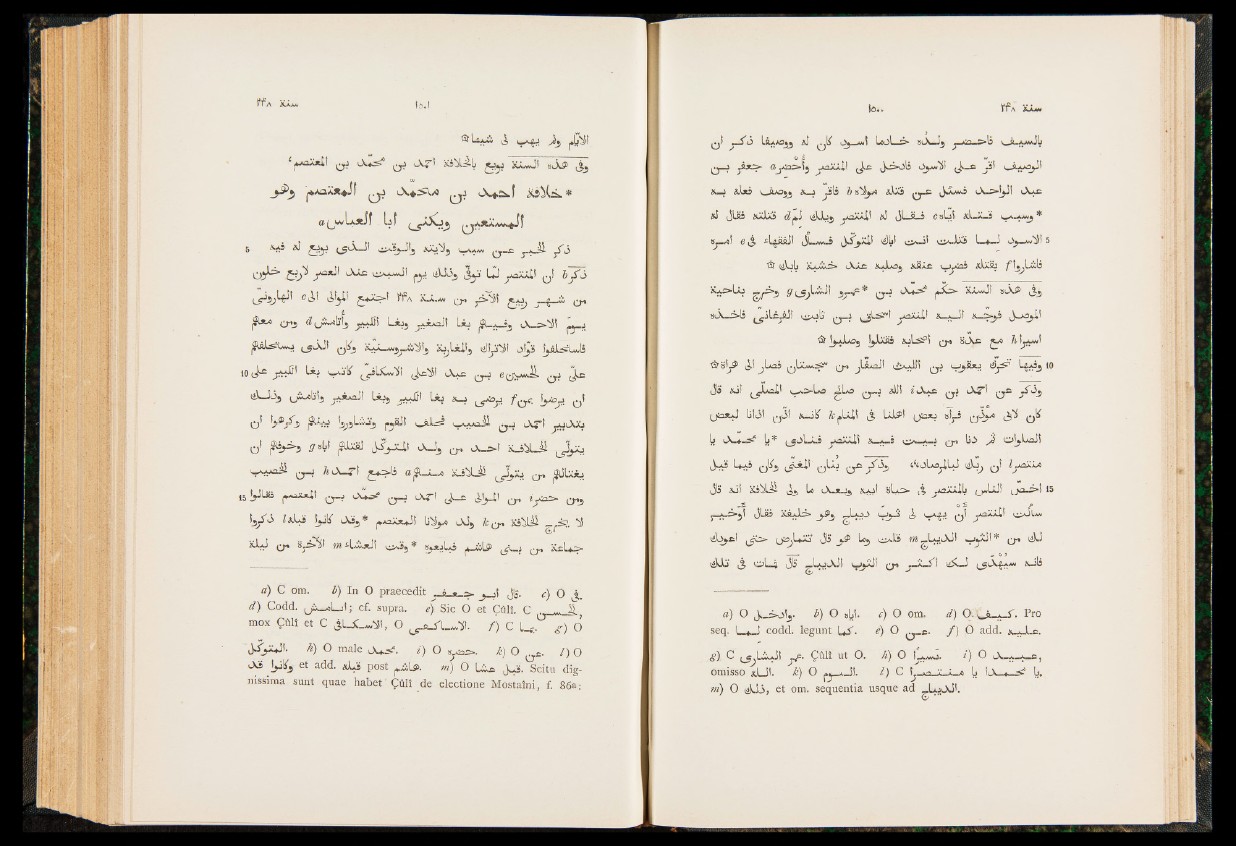 سنة ٢٤٨ ١٥٠٠
بالسيف فاحضر ولده خادما اسود كان له ووصيفا ذكر ان
الوصيف اقرّ على الاسود فادخل على المنتصر وأُحضر a جعفر بن
عبد الواحد فسئل عن قتله مولاه b فاقرّ به ووصف فعله به
*وسبب قتله ايّاه c فقال له المنتصر ويلك لِمَ d قتلته فقال له
5 الاسود لما قتلت انت اباك المتوكّل فسأل الفقهاء فى e امره
فاشاروا f بقتله فضرب عنقه وصلبه عند خشبة بابك ۞
وفى هذه السنة حكّم محمّد بن *عمرو الشارى g وخرج بناحية
الموصل فوجّه اليه المنتصر اسحاق بن ثابت الفرغانىّ فاخذه
اسيرا h مع عدّة من اصحابه فقتلوا وصلبوا ۞
10 وفيها تحرّك يعقوب بن الليث الصفّار من سجستان فصار الى هراة ۞
وذكر عن احمد بن عبد i الله بن صالح صاحب المصلّى انه قال
كان لابى مؤذّن فرآه بعض اهلنا فى المنام k كانه اذّن اذانا لبعض
الصلوات ثم دنا من بيت فيه المنتصر فنادى *يا محمّد يا
منتصر l ان ربّك لبالمرصاد، وذكر عن بُنان المغنّى وكان فيما قيل
15 اخصّ الناس بالمنتصر فى حياة ابيه وبعد ما ولى الخلافة انه قال
سألت المنتصر أن يهب لى ثوب ديباج وهو خليفة فقال أَوَخير
لك من *الثوب الديباج m قلت وما هو قال تتمارض حتى اعودك
فانه سيُهْدَى لك اكثر من الثوب الديباج قال فمات فى تلك
a) O وادخل. b) O اباه. c) O om. d) O كيف. Pro
seq. لما codd. legunt كما. e) O عن. f) O add. عليه.
g) C عمر البشارى. Çûlî ut O. h) O يسيرا. i) O عبيد,
omisso الله. k) O النوم. l) C يا محمدا يا منتصرا.
m) O ذلك, et om. sequentia usque ad الديباج.
١٥٠١ سنة ٢٤٨
الايّام ولم يهب لى شيئا ۞
وفى هذه السنة بويع بالخلافة احمد بن محمّد بن المعتصم،
*خلافة احمد بن محمّد بن المعتصم وهو
المستعين ويكنى ابا العباس a
5 ذكر الخبر عن سبب ولايته والوقت الذى بويع له فيه
ذُكر b ان المنتصر لمّا توفّى وذلك يوم السبت عند العصر لاربع خلون
من شهر ربيع الآخر من سنة ٢٤٨ اجتمع الموالى الى c الهارونىّ
يوم الاحد وفيهم بغا الصغير وبغا الكبير وأتامش d ومن معهم
فاستحلفوا قوّاد الاتراك والمغاربة والاشروسنيّة وكان الذى يستحلفهم
10 علىّ بن الحسين e بن عبد الاعلى الاسكافىّ كاتب بغا الكبير على
ان يرضوا بمن f يرضى به بغا الكبير وبغا الصغير واتامش وذلك
بتدبير احمد بن الخصيب فحلف القوم وتشاوروا بينهم وكرهوا ان
يتولّى الخلافة احد من ولد المتوكّل لقتلهم اباه g وخوفهم ان
يغتالهم من يتولّى الخلافة منهم a فاجمع احمد h بن الخصيب
15 ومن حضر i من الموالى على احمد بن محمّد بن المعتصم فقالوا
لا تخرج الخلافة من k ولد مولانا المعتصم *وقد كانوا قبله l ذكروا
جماعة من بنى هاشم فبايعوه *وقت العشاء m الآخرة من ليلة
a) C om. b) In O praecedit قال ابو جعفر. c) O فى.
d) Codd. اتامش; cf. supra. e) Sic O et Çûlî. C الحسن,
mox Çûlî et C الاسكافى, O الاساكفى. f) C بما. g) O
المتوكل. h) O male محمد. i) O حضره. k) O عن. l) O
وكانوا قد et add. قبله post هاشم. m) O قبل عشا. Scitu dig-
nissima sunt quae habet Çûlî de electione Mostaînî, f. 86a: